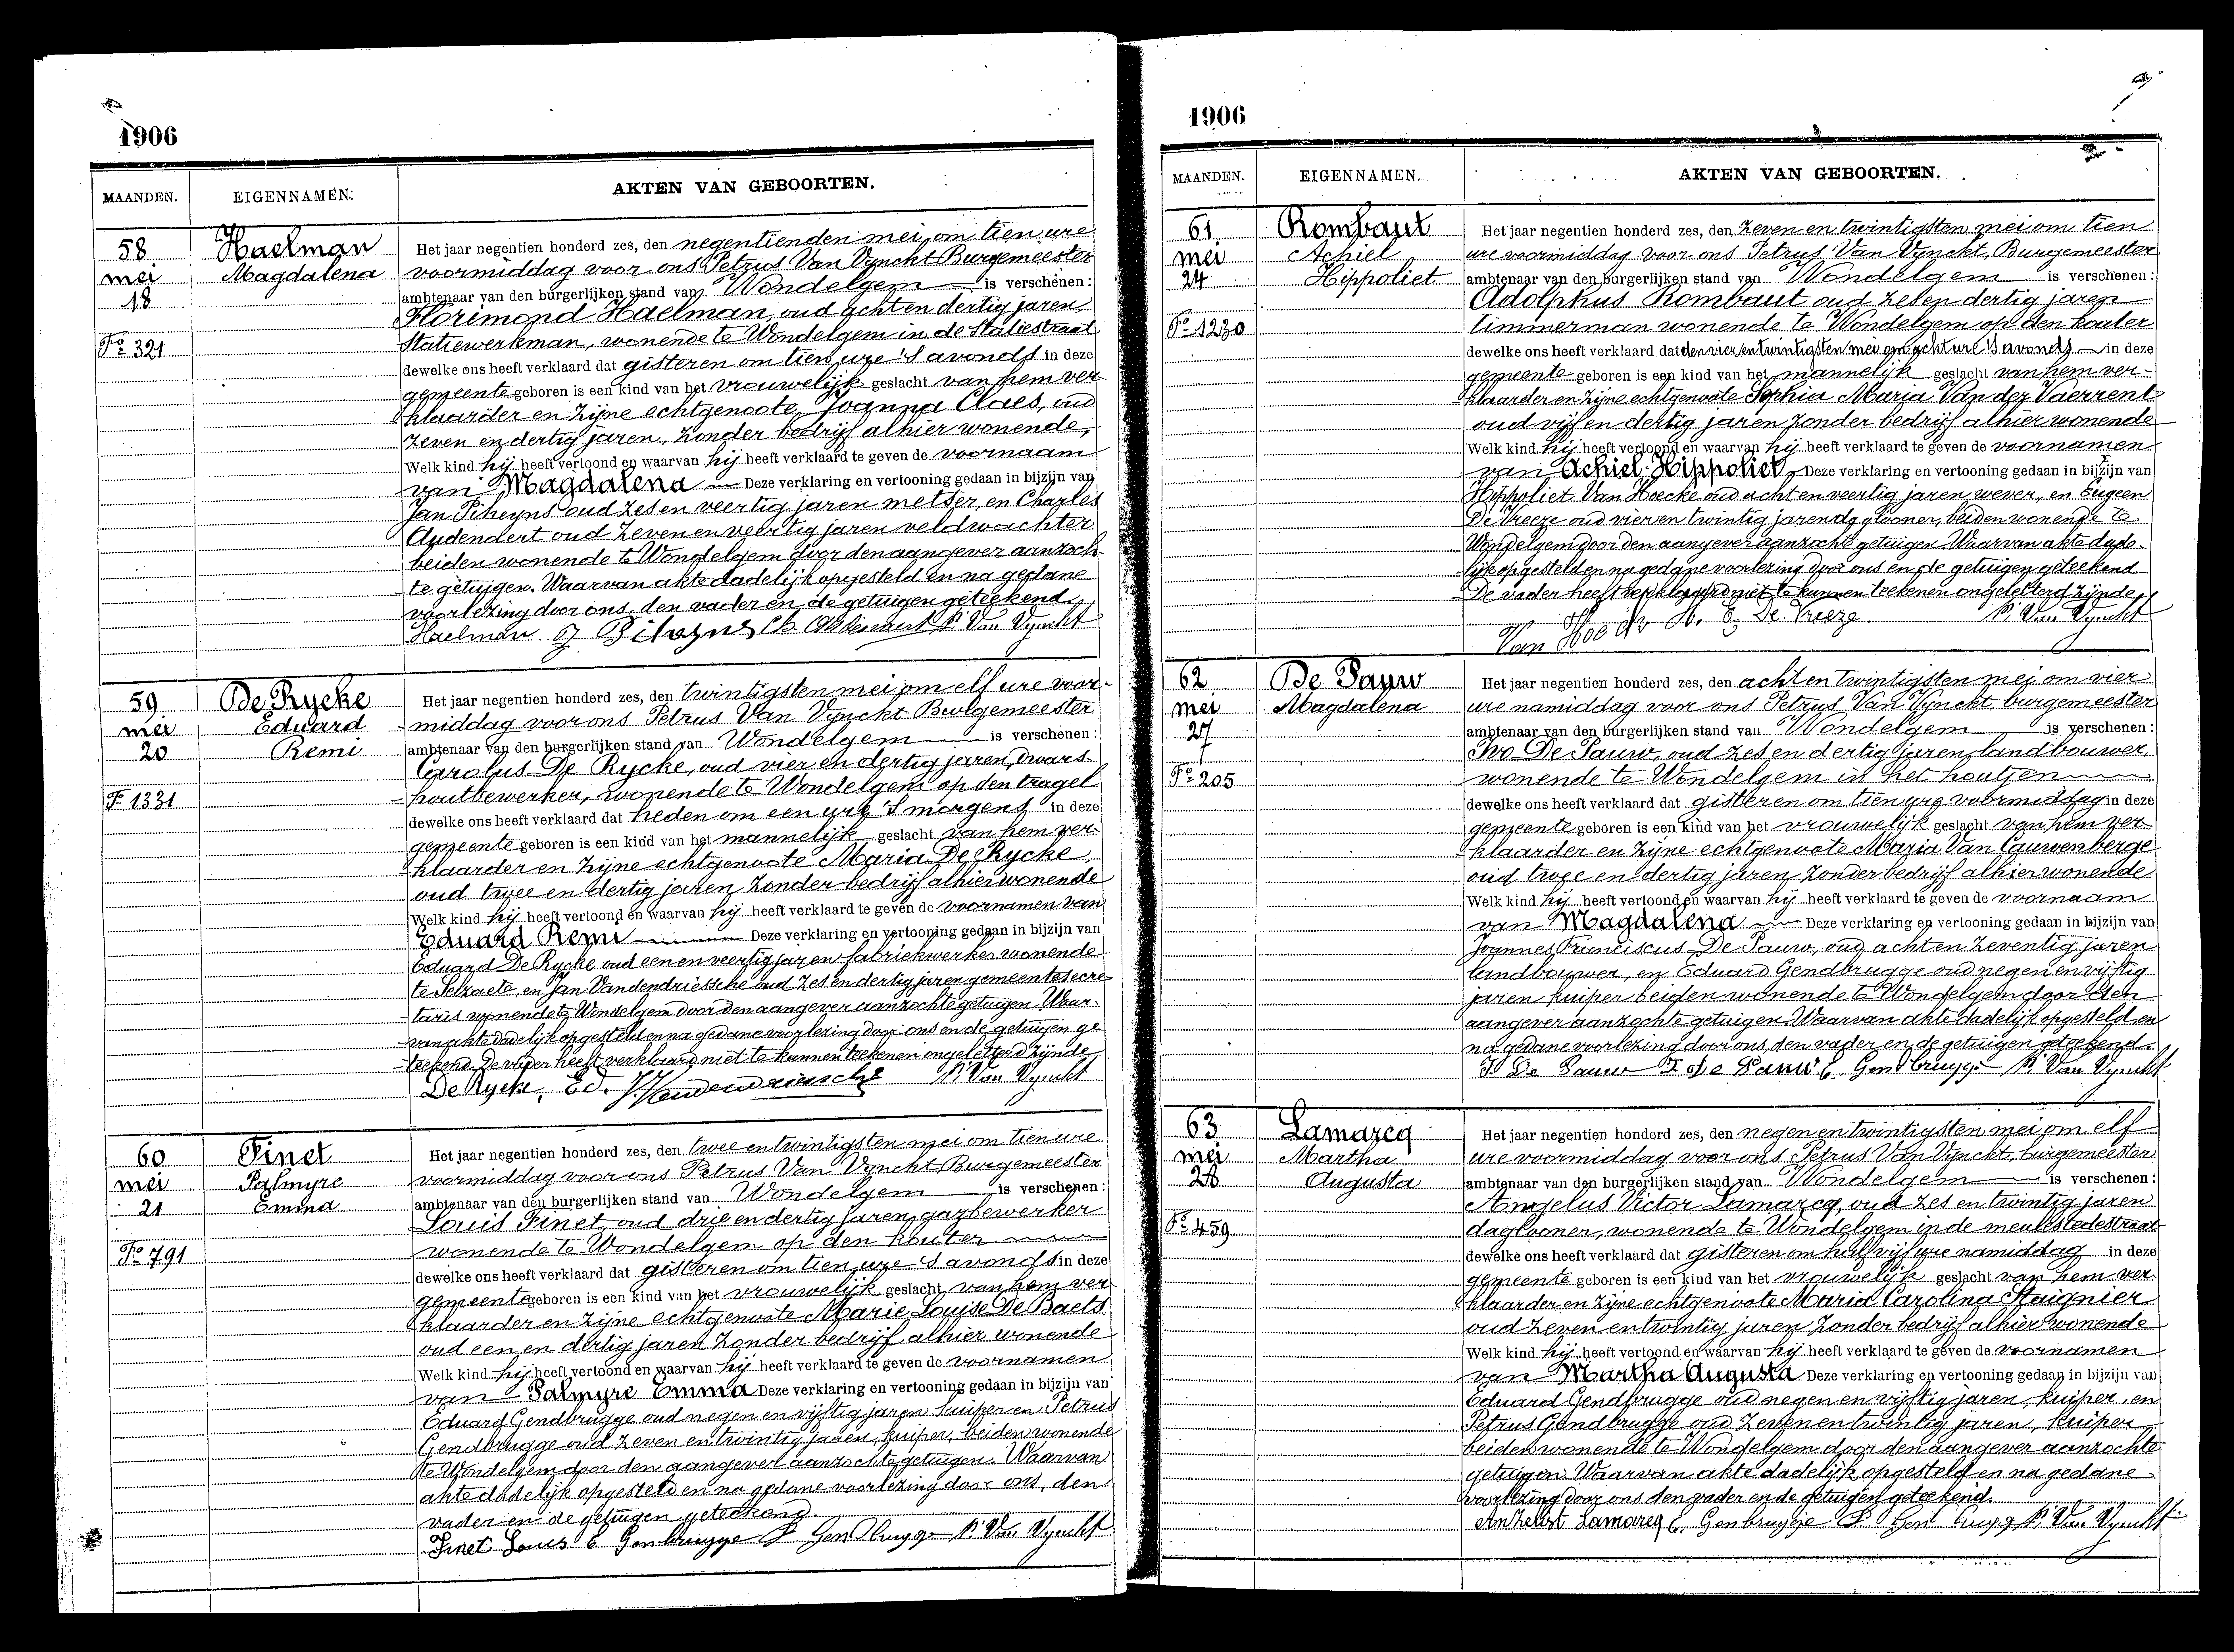 1906
MAANDEN. EIGENNAMEN. AKTEN VAN GEBOORTEN.
58 Haelman Het jaar negentien honderd zes, den negentienden mei, om tien ure
mei Magdalena voormiddag voor ons Petrus Van Vynckt Burgemeester
18 ambtenaar van den burgerlijken stand van Wondelgem is verschenen:
Florimond Haelman, oud acht en dertig jaren,
Fo 321 Statiewerkman, wonende te Wondelgem in de Statiestraat
dewelke ons heeft verklaard dat gisteren om tien ure 's avonds in deze
gemeente geboren is een kind van het vrouwelijk geslacht van hem ver-
klaarder en zijne echtgenoote Joanna Claes, oud
zeven en dertig jaren, zonder bedrijf alhier wonende,
Welk kind hij heeft vertoond en waarvan hij heeft verklaard te geven de voornaam
van Magdalena Deze verklaring en vertooning gedaan in bijzijn van
Jan Piheyns oud zes en veertig jaren metser, en Charles
Audenaert oud zeven en veertig jaren veldwachter
beiden wonende te Wondelgem door den aangever aanzoch-
te getuigen. Waarvan akte dadelijk opgesteld en na gedane
voorlezing door ons, den vader en de getuigen geteekend.
Haelman J Piheyns Ch Audenaert P. Van Vynckt
59 De Rycke Het jaar negentien honderd zes, den twintigsten mei om elf ure voor-
mei Eduard middag voor ons Petrus Van Vynckt Burgemeester
20 Remi ambtenaar van den burgerlijken stand van Wondelgem is verschenen:
Carolus De Rycke, oud vier en dertig jaren, dwars-
F 1331 houtbewerker, wonende te Wondelgem op den tragel
dewelke ons heeft verklaard dat heden om een ure 's morgens in deze
gemeente geboren is een kind van het mannelijk geslacht van hem ver-
klaarder en zijne echtgenoote Maria De Rycke,
oud twee en dertig jaren zonder bedrijf alhier wonende
Welk kind hij heeft vertoond en waarvan hij heeft verklaard te geven de voornamen van
Eduard Remi Deze verklaring en vertooning gedaan in bijzijn van
Eduard De Rycke oud een en veertig jaren fabriekwerker wonende
te Selzaete, en Jan Vandendriessche oud zes en dertig jaren gemeentesecre-
taris wonende te Wondelgem door den aangever aanzochte getuigen. Waar-
van akte dadelijk opgesteld en na gedane voorlezing door ons en de getuigen ge-
teekend. De vader heeft verklaard niet te kunnen teekenen ongeletterd zijnde
De Rycke, Ed. J. Vandendriessche P. Van Vynckt
60 Finet Het jaar negentien honderd zes, den twee en twintigsten mei om tien ure
mei Palmyre voormiddag voor ons Petrus Van Vynckt Burgemeester
21 Emma ambtenaar van den burgerlijken stand van Wondelgem is verschenen:
Louis Finet, oud drie en dertig jaren, gazbewerker
Fo 791 wonende te Wondelgem op den kouter
dewelke ons heeft verklaard dat gisteren om tien ure 's avonds in deze
gemeente geboren is een kind van het vrouwelijk geslacht van hem ver-
klaarder en zijne echtgenoote Marie Louise De Baets
oud een en dertig jaren zonder bedrijf alhier wonende
Welk kind hij heeft vertoond en waarvan hij heeft verklaard te geven de voornamen
van Palmyre Emma Deze verklaring en vertooning gedaan in bijzijn van
Eduard Gendbrugge oud negen en vijftig jaren kuiper en Petrus
Gendbrugge oud zeven en twintig jaren, kuiper, beiden wonende
te Wondelgem door den aangever aanzochte getuigen. Waarvan
akte dadelijk opgesteld en na gedane voorlezing door ons, den
vader en de getuigen geteekend.
Finet Louis E Genbrugge P Genbrugge P. Van Vynckt
1906
MAANDEN. EIGENNAMEN. AKTEN VAN GEBOORTEN.
61 Rombaut Het jaar negentien honderd zes, den zeven en twintigsten mei om tien
mei Achiel ure voormiddag voor ons Petrus Van Vynckt, Burgemeester
24 Hippoliet ambtenaar van den burgerlijken stand van Wondelgem is verschenen:
Adolphus Rombaut oud zes en dertig jaren
Fo 1230 timmerman wonende te Wondelgem op den kouter
dewelke ons heeft verklaard dat den vier en twintigsten mei om acht ure 's avonds in deze
gemeente geboren is een kind van het mannelijk geslacht van hem ver-
klaarder en zijne echtgenoote Sophia Maria Van der Vaerrent
oud vijf en dertig jaren zonder bedrijf alhier wonende
Welk kind hij heeft vertoond en waarvan hij heeft verklaard te geven de voornamen
van Achiel Hippoliet Deze verklaring en vertooning gedaan in bijzijn van
Hippoliet Van Hoecke oud acht en veertig jaren, wever, en Eugeen
De Vreeze oud vier en twintig jaren daglooner, beiden wonende te
Wondelgem door den aangever aanzochte getuigen. Waarvan akte dade-
lijk opgesteld en na gedane voorlezing door ons en de getuigen geteekend
De vader heeft verklaard niet te kunnen teekenen ongeletterd zijnde
Van Hoecke H. E, De Vreeze P. Van Vynckt
62 De Pauw Het jaar negentien honderd zes, den acht en twintigsten mei om vier
mei Magdalena ure namiddag voor ons Petrus Van Vynckt, burgemeester
27 ambtenaar van den burgerlijken stand van Wondelgem is verschenen:
Ivo De Pauw, oud zes en dertig jaren, landbouwer
Fo 205 wonende te Wondelgem in het houtjen
dewelke ons heeft verklaard dat gisteren om tien ure voormiddag in deze
gemeente geboren is een kind van het vrouwelijk geslacht van hem ver-
klaarder en zijne echtgenoote Maria Van Cauwenberge
oud twee en dertig jaren zonder bedrijf alhier wonende
Welk kind hij heeft vertoond en waarvan hij heeft verklaard te geven de voornaam
van Magdalena Deze verklaring en vertooning gedaan in bijzijn van
Joannes Franciscus De Pauw, oud acht en zeventig jaren
landbouwer, en Eduard Gendbrugge oud negen en vijftig
jaren kuiper beiden wonende te Wondelgem door den
aangever aanzochte getuigen. Waarvan akte dadelijk opgesteld en
na gedane voorlezing door ons, den vader en de getuigen geteekend.
I De Pauw F de Pauw E Genbrugge P. Van Vynckt
63 Lamarcq Het jaar negentien honderd zes, den negen en twintigsten mei om elf
mei Martha ure voormiddag voor ons Petrus Van Vynckt, burgemeester
28 Augusta ambtenaar van den burgerlijken stand van Wondelgem is verschenen:
Angelus Victor Lamarcq, oud zes en twintig jaren
Fo 459 daglooner, wonende te Wondelgem in de meullestedestraat
dewelke ons heeft verklaard dat gisteren om half vijf ure namiddag in deze
gemeente geboren is een kind van het vrouwelijk geslacht van hem ver-
klaarder en zijne echtgenoote Maria Carolina Staignier
oud zeven en twintig jaren zonder bedrijf alhier wonende
Welk kind hij heeft vertoond en waarvan hij heeft verklaard te geven de voornamen
van Martha Augusta Deze verklaring en vertooning gedaan in bijzijn van
Eduard Gendbrugge oud negen en vijftig jaren, kuiper, en
Petrus Gendbrugge oud zeven en twintig jaren, kuiper
beiden wonende te Wondelgem door den aangever aanzochte
getuigen. Waarvan akte dadelijk opgesteld en na gedane
voorlezing door ons den vader en de getuigen geteekend.
Lamarcq E, Genbrugge P. Genbrugge P. Van Vynckt